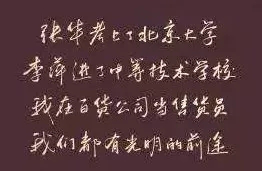 张华考上了北京大学
李萍进了中等技术学校
我在百货公司当售货员
我们都有光明的前途